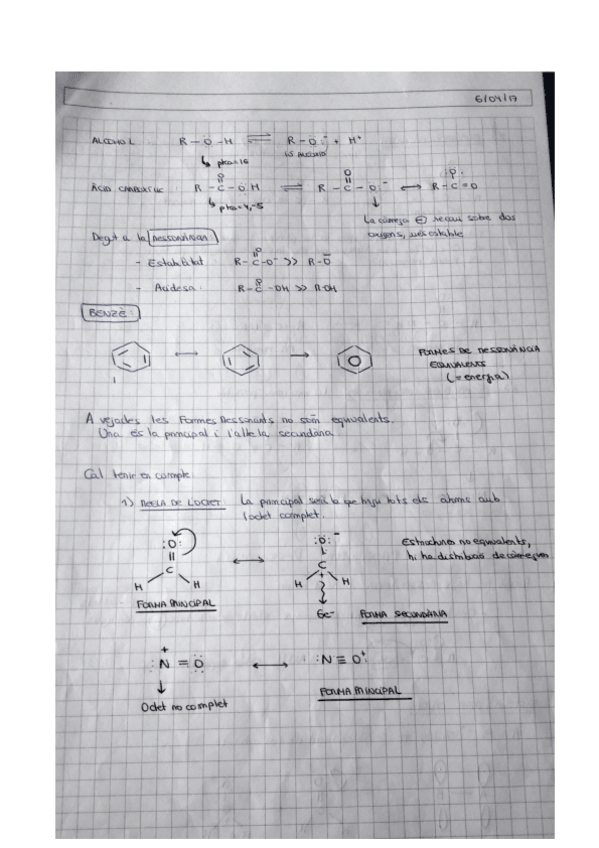 6/04/17
ALCOHOL R-O-H ⇌ R-O:⁻ + H⁺
pka=16 ió alcòxid
ÀCID CARBOXÍLIC R-C-O-H ⇌ R-C-O:⁻ ↔ R-C=O
O O :O:
pka=4,-5
La càrrega ⊖ recau sobre dos
oxígens, més estable
Degut a la RESSONÀNCIA:
- Estabilitat R-C-O⁻ >> R-O⁻
O
- Acidesa: R-C-OH >> R-OH
O
BENZÈ:
↔ →
FORMES DE RESSONÀNCIA
EQUIVALENTS
(=energia)
A vegades les Formes Ressonants no són equivalents.
Una és la principal i l'altre la secundària.
Cal tenir en compte:
1) REGLA DE L'OCTET La principal serà la que hagi tots els àtoms amb
l'octet complet.
:O: ↔ :O:⁻
C C⁺
H H H H
Estructures no equivalents,
hi ha distribució de càrregues
FORMA PRINCIPAL
6e- FORMA SECUNDÀRIA
+
:N=O: ↔ :N≡O⁺
Octet no complet
FORMA PRINCIPAL